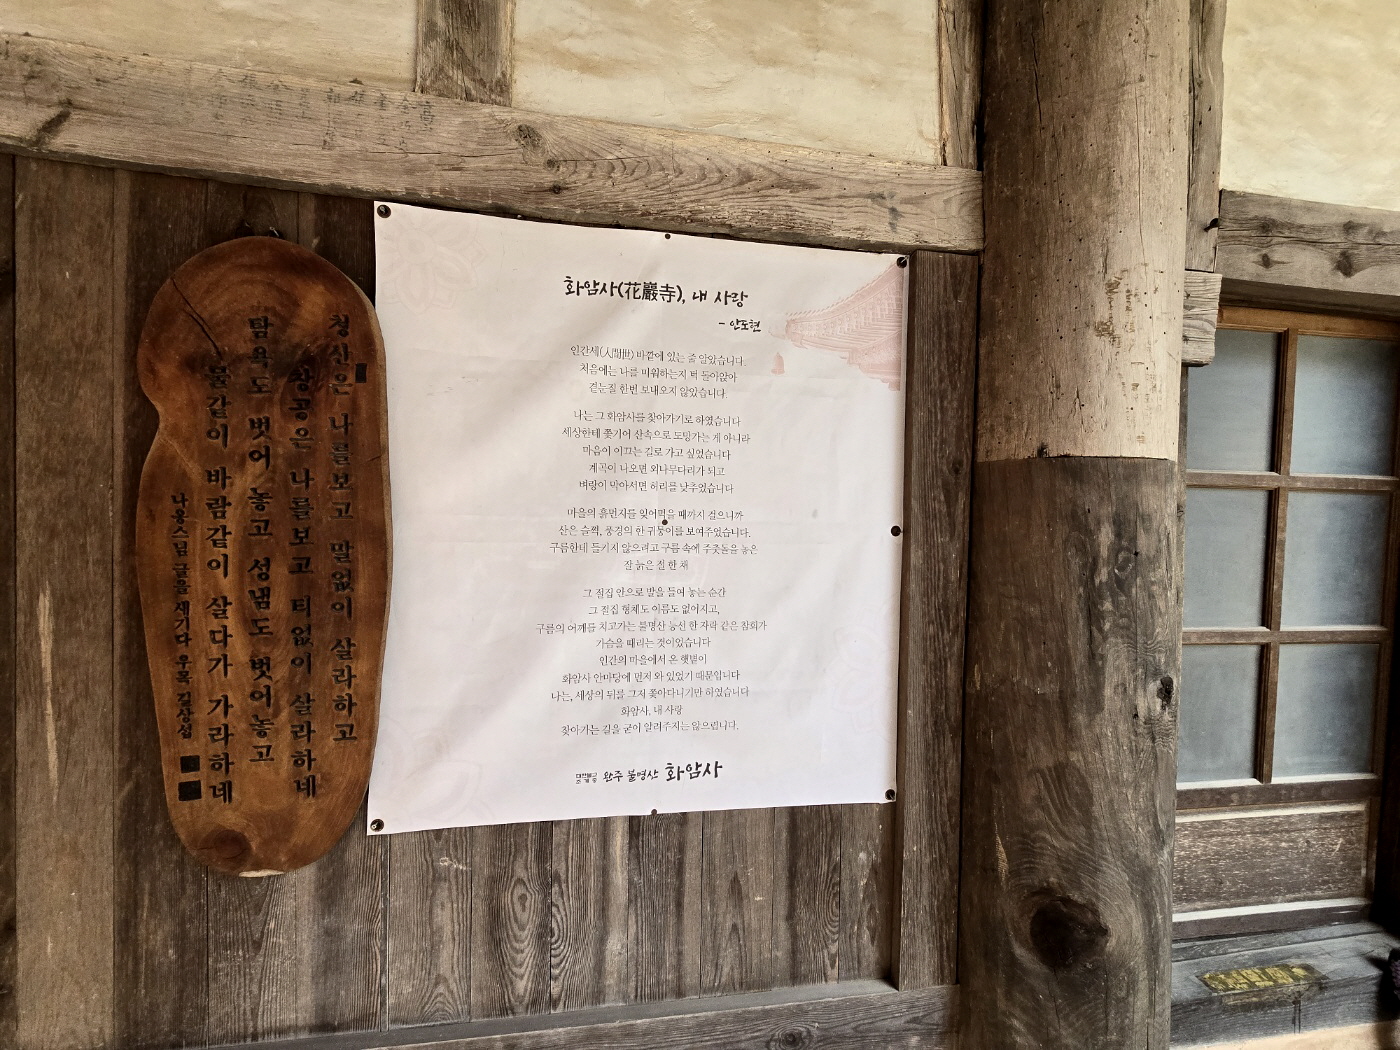 청산은 나를보고 말없이 살라하고
창공은 나를보고 티없이 살라하네
탐욕도 벗어놓고 성냄도 벗어놓고
물같이 바람같이 살다가 가라하네
나옹스님 글을 새기다 우목 김상섭
화암사(花巖寺), 내 사랑
- 안도현
인간세(人間世) 바깥에 있는 줄 알았습니다.
처음에는 나를 미워하는지 턱 돌아앉아
곁눈질 한번 보내오지 않았습니다.
나는 그 화암사를 찾아가기로 하였습니다
세상한테 쫓기어 산속으로 도망가는 게 아니라
마음이 이끄는 길로 가고 싶었습니다
계곡이 나오면 외나무다리가 되고
벼랑이 막아서면 허리를 낮추었습니다
마을의 흙먼지를 잊어먹을 때까지 걸으니까
산은 슬쩍, 풍경의 한 귀퉁이를 보여주었습니다.
구름한테 들키지 않으려고 구름 속에 주춧돌을 놓은
잘 늙은 절 한 채
그 절집 안으로 발을 들여 놓는 순간
그 절집 형체도 이름도 없어지고,
구름의 어깨를 치고가는 불명산 능선 한 자락 같은 참회가
가슴을 때리는 것이었습니다
인간의 마을에서 온 햇볕이
화암사 안마당에 먼저 와 있었기 때문입니다
나는, 세상의 뒤를 그저 쫓아다니기만 하였습니다
화암사, 내 사랑
찾아가는 길을 굳이 알려주지는 않으렵니다.
대한불교 조계종 완주 불명산 화암사